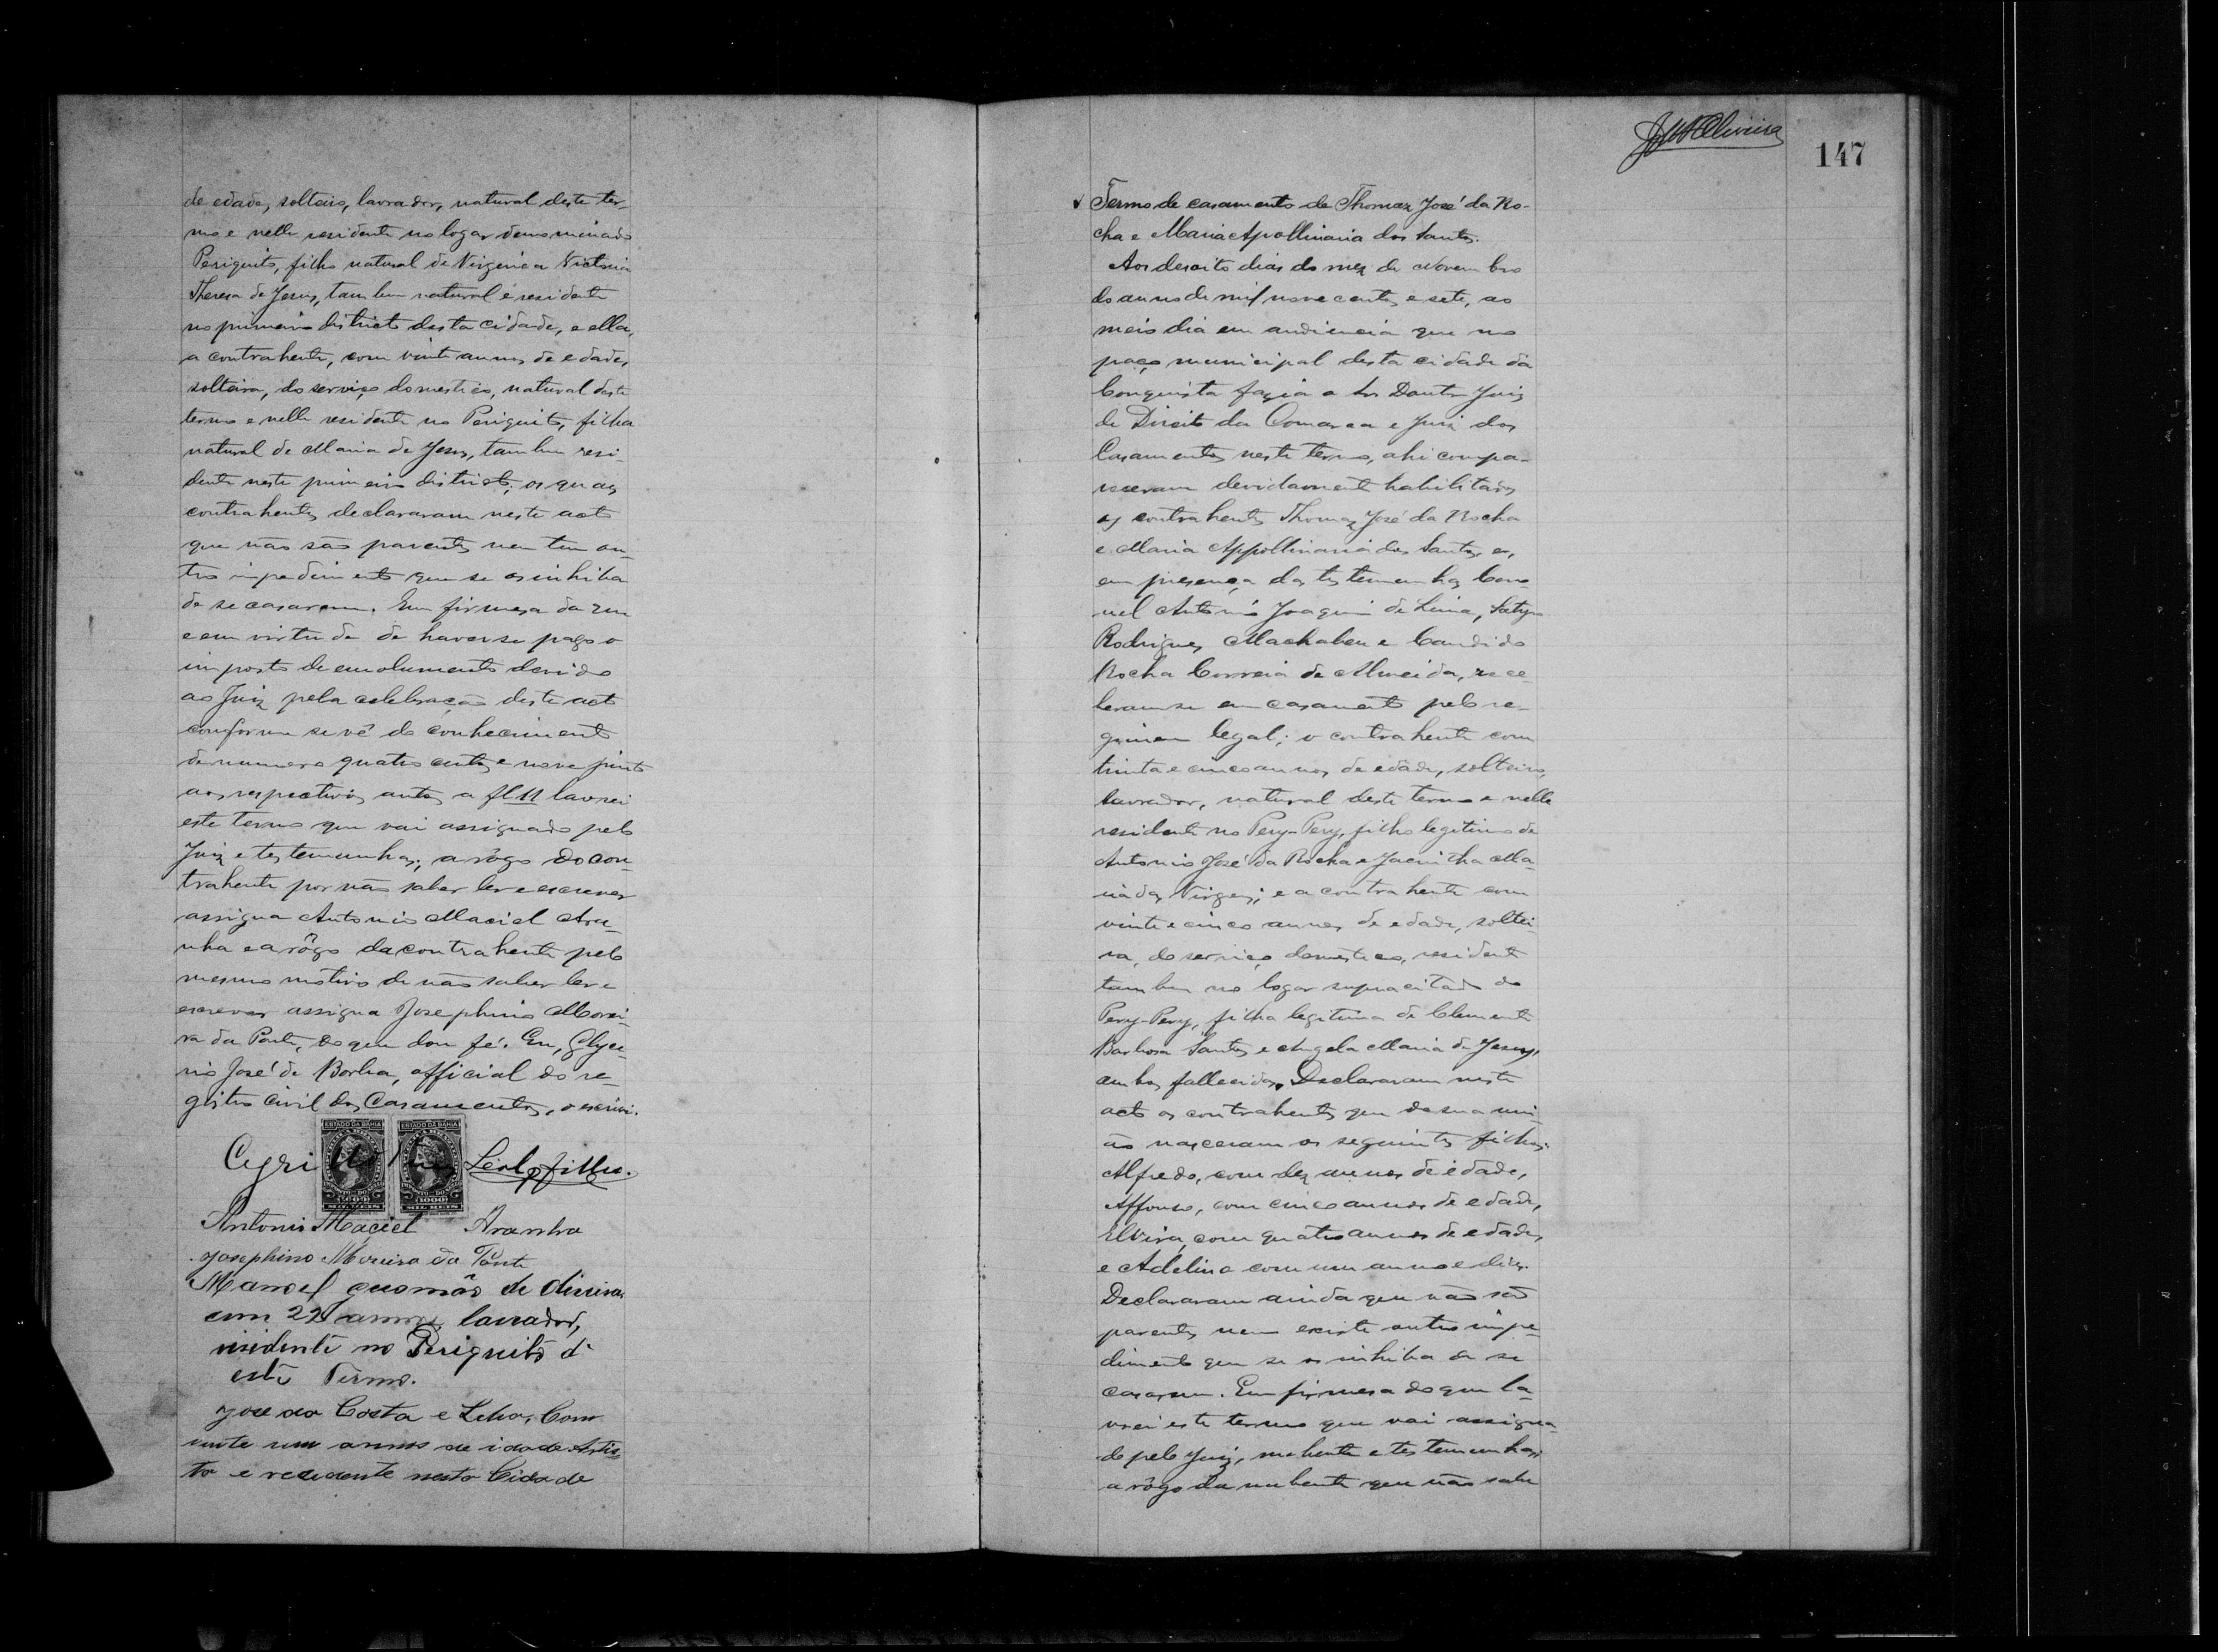 de edade, solteiro, lavrador, natural deste ter-
mo e nelle residente no logar denominado
Periquito, filho natural de Virginia Victoria
Theresa de Jesus, tambem natural e residente
no primeiro districto desta cidade, e ella,
a contrahente, com vinte annos de edade,
solteira, do serviço domestico, natural deste
termo e nelle residente no Periquito, filha
natural de Maria de Jesus, tambem resi-
dente neste primeiro districto; os quaes
contrahentes declararam neste acto
que não são parentes nem tem ou-
tro impedimento que se os inhiba
de se casarem. Em firmesa do que
e em virtude de haver se pago o
imposto de emolumento devido
ao Juiz pela celebração deste acto
conforme se vê do conhecimento
de numero quatro centos e nove junto
aos respectivos autos a fl 11 lavrei
este termo que vai assignado pelo
Juiz e testemunhas; a rôgo do con-
trahente por não saber ler e escrever
assigna Antonio Maciel Ara-
nha e a rôgo da contrahente pelo
mesmo motivo de não saber ler e
escrever assigna Josephino Morei-
ra da Ponte, do que dou fé. Eu, Glyce-
rio José de Borba, official do re-
gistro civil dos Casamentos, o escrivi.
ESTADO DA BAHIA ESTADO DA BAHIA
Leal filho.
Antonio Maciel Aranha
Josephino Moreira da Ponte
Manoel de
com 22 annos, lavrador,
residente no Periquito d'
este Termo.
Jose da Costa e Com
vinte um annos de idade Artis
ta e recedente nesta Cidade
147
Termo de casamento de Thomaz José da Ro-
cha e Maria Apollinaria dos Santos.
Aos desoito dias do mez de Novembro
do anno de mil nove centos e sete, ao
meio dia em audiencia que no
paço municipal desta cidade da
Conquista fazia o Sr Doutor Juiz
de Direito da Comarca e Juiz dos
Casamentos neste termo, ahi compa-
receram devidamente habilitados
os contrahentes Thomaz José da Rocha
e Maria Appollinaria dos Santos, e,
em presença das testemunhas Coro
nel Antonio Joaquim de Lima, Satyro
Rodrigues Machabeu e Candido
Rocha Correia de Almeida, rece-
beram se em casamento pelo re-
gimen legal; o contrahente com
trinta e cinco annos de edade, solteiro,
lavrador, natural deste termo e nelle
residente no Pery-Pery, filho legitimo de
Antonio José da Rocha e Jacintha Ma-
ria das Virgens; e a contrahente com
vinte e cinco annos de edade, soltei-
ra, do serviço domestico, residente
tambem no logar supracitado do
Pery-Pery, filha legitima de Clemente
Barbosa Santos e Angela Maria de Jesus,
ambos fallecidos. Declararam neste
acto os contrahentes que de sua uni-
ão nasceram os seguintes filhos:
Alfredo, com dez annos de edade,
Affonso, com cinco annos de edade,
Elvira, com quatro annos de edade,
e Adelina com um anno e dias.
Declararam ainda que não são
parentes nem existe outro impe-
dimento que se os inhiba de se
casarem. Em firmesa do que la-
vrei este termo que vai assigna-
do pelo Juiz, nubente e testemunhas;
a rôgo da nubente que não sabe